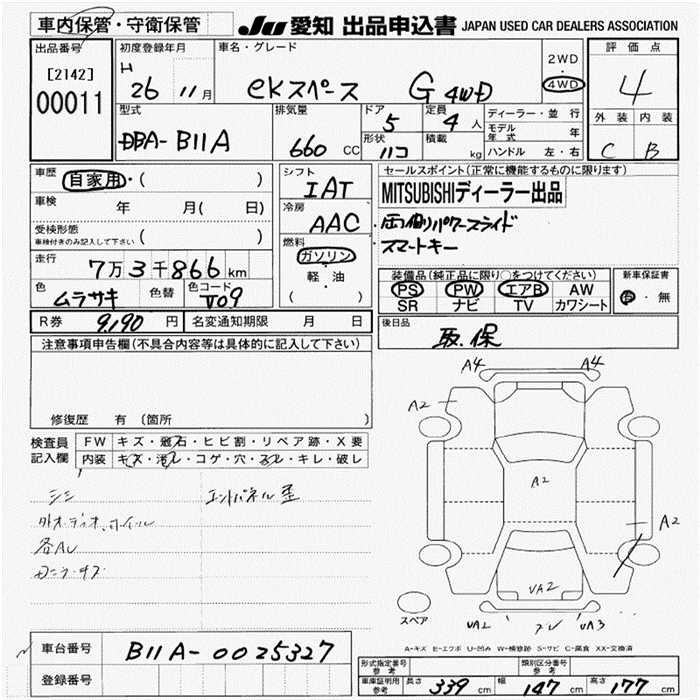 車内保管・守衛保管
JU 愛知 出品申込書 JAPAN USED CAR DEALERS ASSOCIATION
出品番号
[2142]
00011
初度登録年月
H 26 11月
車名・グレード
eKスペース G 4WD
2WD
・
4WD
評価点
4
外装 内装
C B
型式
DBA-B11A
排気量
660 CC
ドア
5
形状
ハコ
定員
4 人
積載
kg
ディーラー・並行
モデル年式 年
ハンドル 左・右
車歴 自家用・( )
車検 年 月( 日)
受検形態
車検付きのみ記入して下さい ( )
走行 7万3千866km
色 ムラサキ
色替
色コード V09
シフト
IAT
冷房
AAC
燃料
ガソリン
・
軽・油
( )
セールスポイント(正常に機能するものに限ります)
MITSUBISHIディーラー出品
・両側パワースライド
・スマートキー
装備品(純正品に限り○をつけてください)
PS PW エアB AW
SR ナビ TV カワシート
新車保証書
有・無
R券 9,190 円
名変通知期限 月 日
後日品
取.保
注意事項申告欄(不具合内容等は具体的に記入して下さい)
修復歴 有 (箇所 )
検査員記入欄
FW キズ・飛石・ヒビ割・リペア跡・X要
内装 キズ・汚レ・コゲ・穴・ヌレ・キレ・破レ
各AU
A4 A4
A2
A2
A2
VA2
VA2 VA3
スペア
A-キズ E-エクボ U-凹み W-補修跡 S-サビ C-腐食 XX-交換済
車台番号 B11A-0025327
登録番号
形式指定番号
参考
類別区分番号
参考
車庫証明用
参考
長さ 339 cm 幅 147 cm 高さ 177 cm